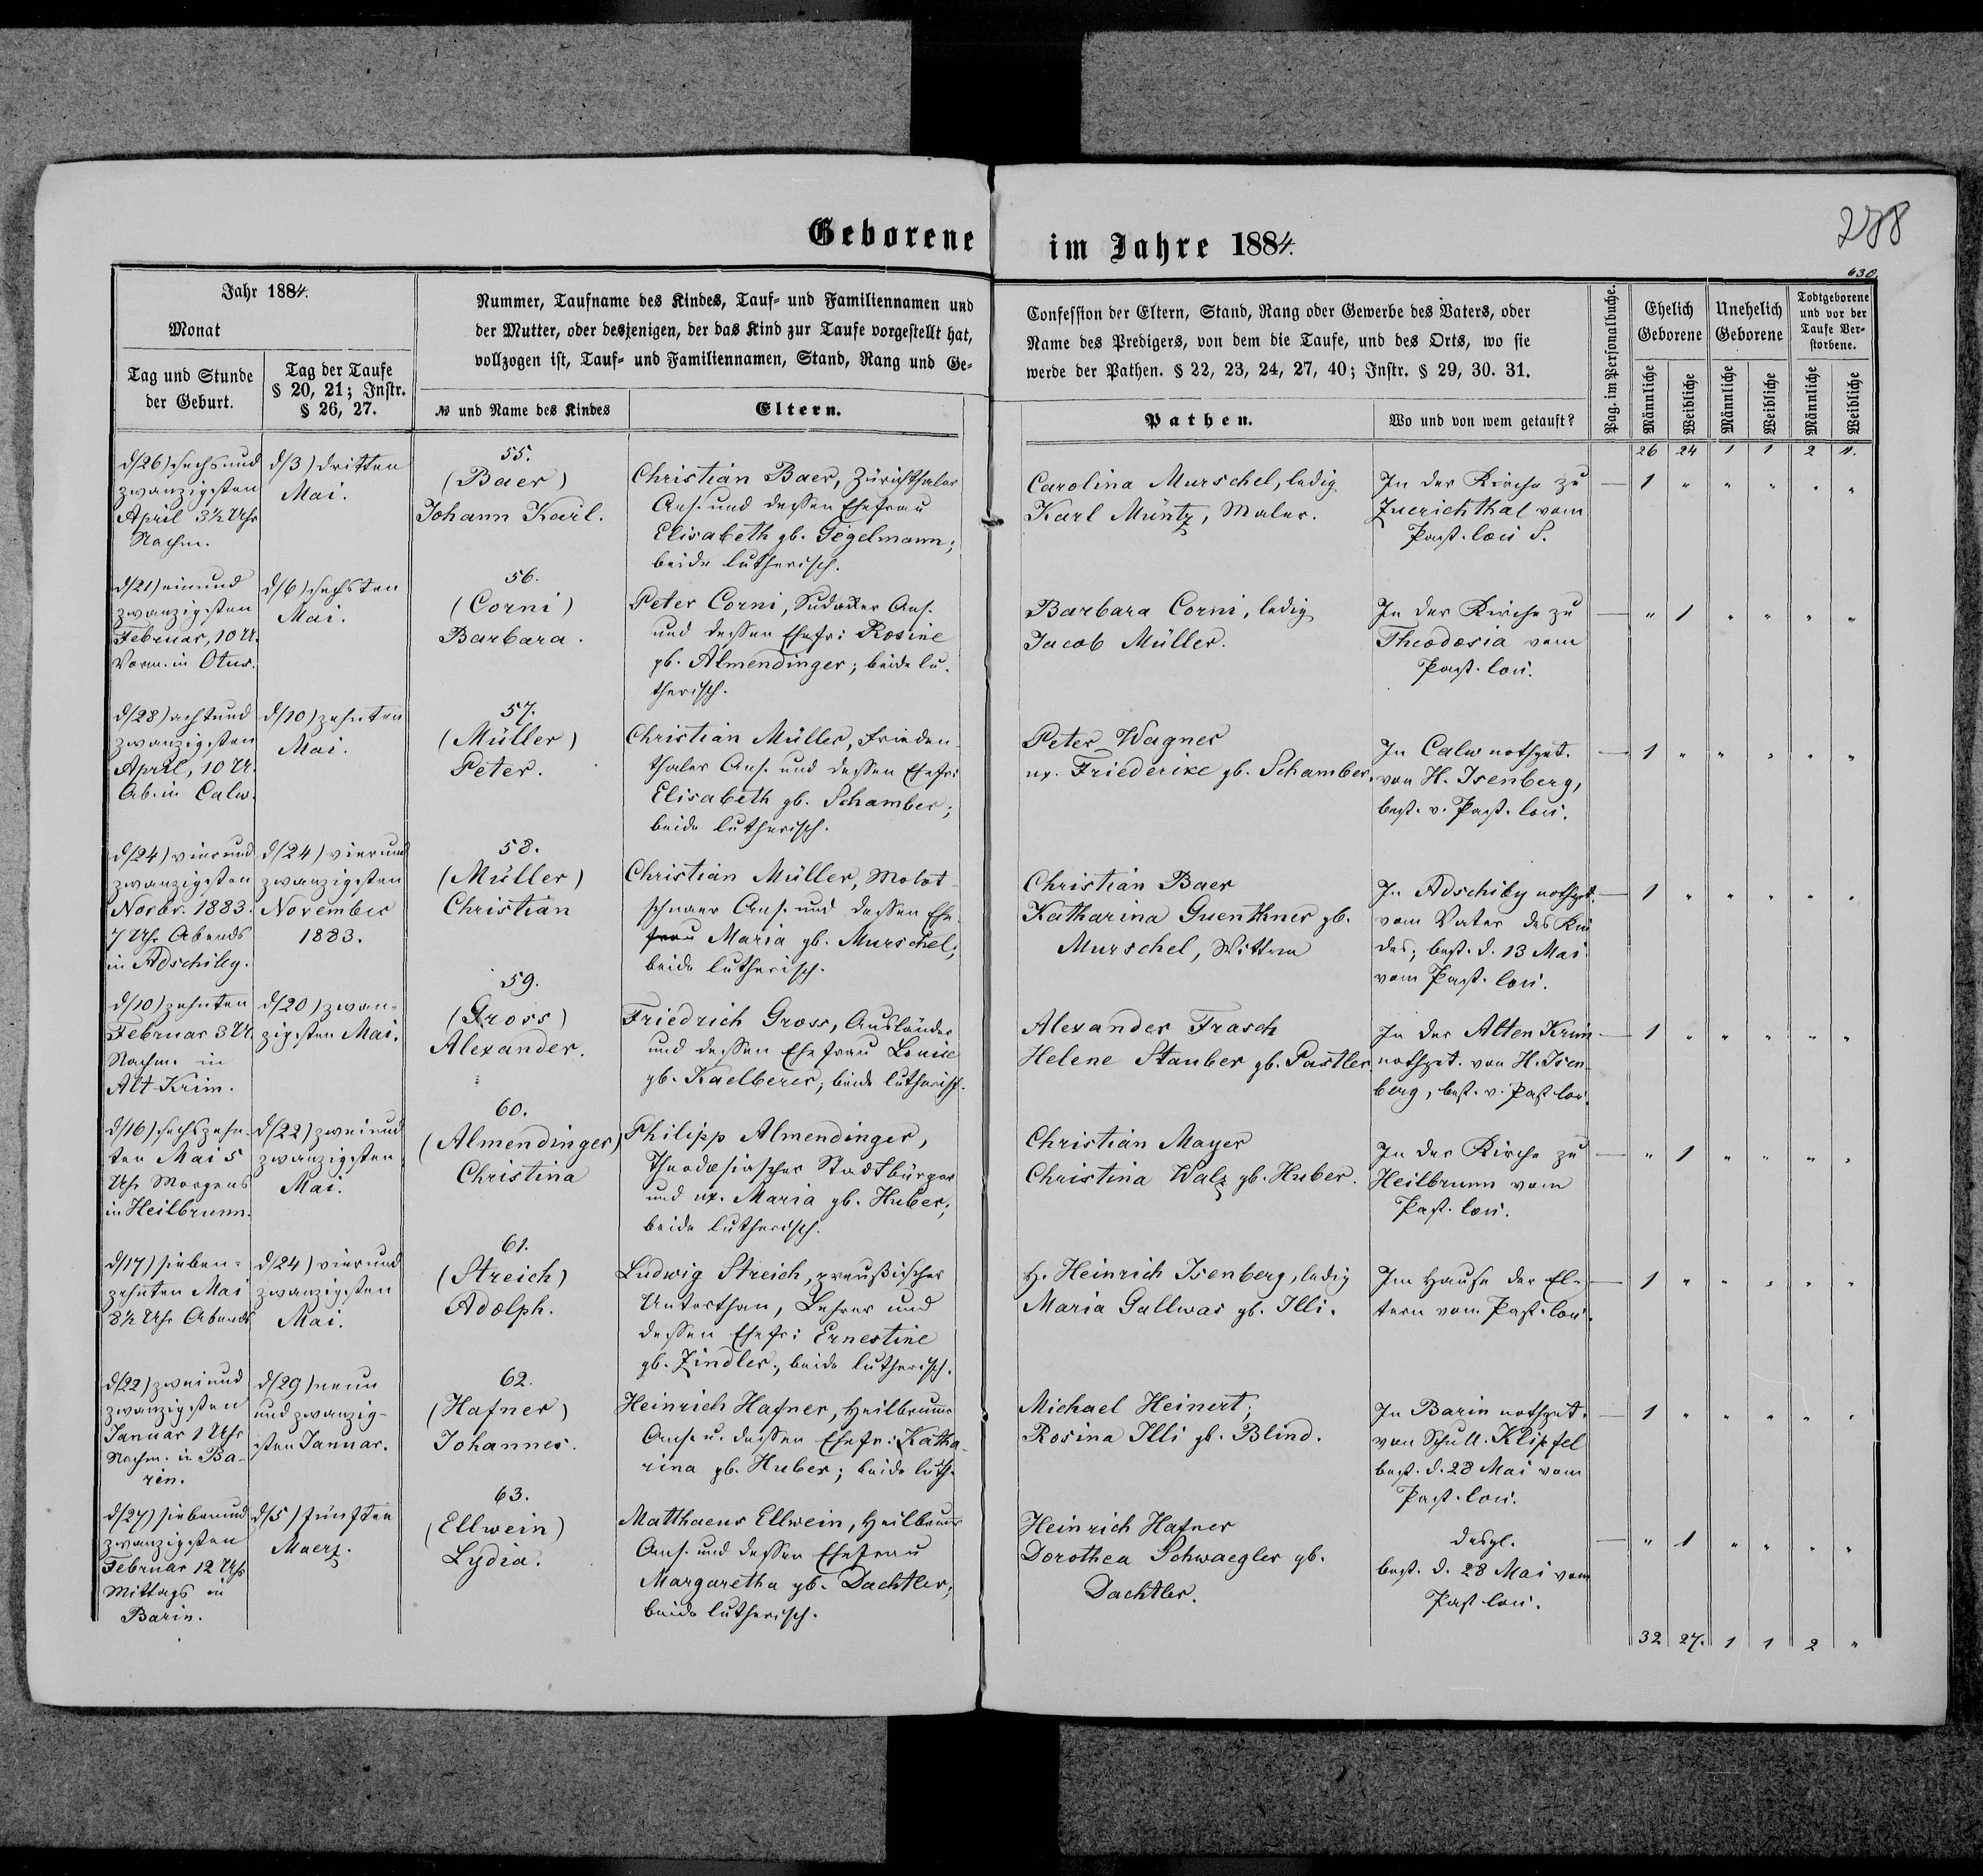 Geborene im Jahre 1884.
288
630.
Jahr 1884.
Monat
Tag und Stunde
der Geburt.
Tag der Taufe
§ 20, 21; Instr.
§ 26, 27.
Nummer, Taufname des Kindes, Tauf- und Familiennamen und
der Mutter, oder desjenigen, der das Kind zur Taufe vorgestellt hat,
vollzogen ist, Tauf- und Familiennamen, Stand, Rang und Ge-
№ und Name des Kindes
Eltern.
Confession der Eltern, Stand, Rang oder Gewerbe des Vaters, oder
Name des Predigers, von dem die Taufe, und des Orts, wo sie
werde der Pathen. § 22, 23, 24, 27, 40; Instr. § 29, 30. 31.
Pathen.
Wo und von wem getauft?
Pag. im Personalbuche.
Ehelich
Geborene
Unehelich
Geborene
Todtgeborene
und vor der
Taufe Ver-
storbene.
Männliche
Weibliche
Männliche
Weibliche
Männliche
Weibliche
26 24 1 1 2 "
d/26) sechsund
zwanzigsten
April 3½ Uhr
Nachm.
d/3) dritten
Mai.
55.
(Baer)
Johann Karl.
Christian Baer, Zürichthaler
Ans. und dessen Ehefrau
Elisabeth gb. Gegelmann;
beide lutherisch.
Carolina Murschel, ledig
Karl Müntz, Maler.
In der Kirche zu
Zuerichthal vom
Past. loci S.
— 1 " " " " "
d/21) einund
zwanzigsten
Februar, 10 U.
Vorm. in Otus.
d/6) sechsten
Mai.
56.
(Corni)
Barbara.
Peter Corni, Sudaker Ans.
und dessen Ehefr: Rosine
gb. Almendinger; beide lu-
therisch.
Barbara Corni, ledig
Jacob Müller.
In der Kirche zu
Theodosia vom
Past. loci.
— " 1 " " " "
d/28) achtund
zwanzigsten
April, 10 U.
Ab. in Calw.
d/10) zehnten
Mai.
57.
(Müller)
Peter.
Christian Müller, Frieden-
thaler Ans. und dessen Ehefr:
Elisabeth gb. Schamber;
beide lutherisch.
Peter Wagner
ux. Friederike gb. Schamber.
In Calw nothget.
von H. Isenberg,
best. v. Past. loci.
— 1 " " " " "
d/24) vierund
zwanzigsten
Novbr. 1883.
7 Uhr Abends
in Adschiby.
d/24) vierund
zwanzigsten
November
1883.
58.
(Müller)
Christian
Christian Müller, Molot-
schnaer Ans. und dessen Ehe-
frau Maria gb. Murschel;
beide lutherisch.
Christian Baer
Katharina Guenthner gb.
Murschel, Wittwe
In Adschiby nothget.
vom Vater des Kin
des; best. d. 13 Mai
vom Past. loci.
— 1 " " " " "
d/10) zehnten
Februar 3 U.
Nachm. in
Alt-Krim.
d/20) zwan-
zigsten Mai.
59.
(Gross)
Alexander.
Friedrich Gross, Ausländer
und dessen Ehefrau Louise
gb. Kaelberer, beide lutherisch.
Alexander Frasch
Helene Stauber gb. Pastler
In der Alten Krim
nothget. von H. Isen-
berg, best. v. Past loci.
— 1 " " " " "
d/16) sechszehn-
ten Mai 5
Uhr Morgens
in Heilbrunn.
d/22) zweiund
zwanzigsten
Mai.
60.
(Almendinger)
Christina
Philipp Almendinger,
Theodosiascher Stadtbürger
und ux. Maria gb. Huber;
beide lutherisch.
Christian Mayer
Christina Walz gb. Huber.
In der Kirche zu
Heilbrunn vom
Past. loci.
— " 1 " " " "
d/17) sieben-
zehnten Mai
8½ Uhr Abends
d/24) vierund
zwanzigsten
Mai.
61.
(Streich)
Adolph.
Ludwig Streich, preußischer
Unterthan, Lehrer und
dessen Ehefr: Ernestine
gb. Zindler, beide lutherisch.
H. Heinrich Isenberg, ledig
Maria Gallwas gb. Illi.
Im Hause der El-
tern vom Past. loci.
— 1 " " " " "
d/22) zweiund
zwanzigsten
Januar 1 Uhr
Nachm. in Ba-
rin.
d/29) neun
und zwanzig-
sten Januar.
62.
(Hafner)
Johannes.
Heinrich Hafner, Heilbrunner
Ans. u. dessen Ehefr: Katha-
rina gb. Huber; beide luth.
Michael Heinert;
Rosina Illi gb. Blind.
In Barin nothget.
von Schull. Klipfel
best. d. 28 Mai vom
Past. loci.
— 1 " " " " "
d/27) siebenund
zwanzigsten
Februar 12 Uhr
Mittags in
Barin.
d/5) fünften
Maerz.
63.
(Ellwein)
Lydia.
Matthaeus Ellwein, Heilbrunner
Ans. und dessen Ehefrau
Margaretha gb. Dachtler;
beide lutherisch.
Heinrich Hafner
Dorothea Schwaegler gb.
Dachtler.
desgl.
best. d. 28 Mai vom
Past loci.
— " 1 " " " "
32 27. 1 1 2 "